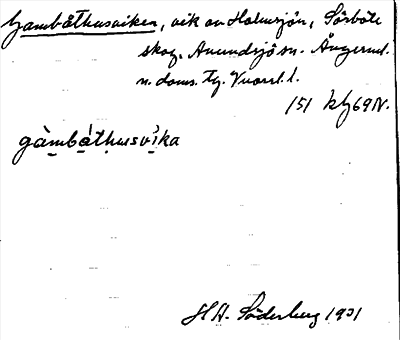 Gambåthusviken, vik av Holmsjön, Sörböle
skog. Anundsjö sn. Ångerml.
n. doms. tg. Vnorrl. l.
151 kbg 69N.
gàmbáthusvika
H A. Söderberg 1931